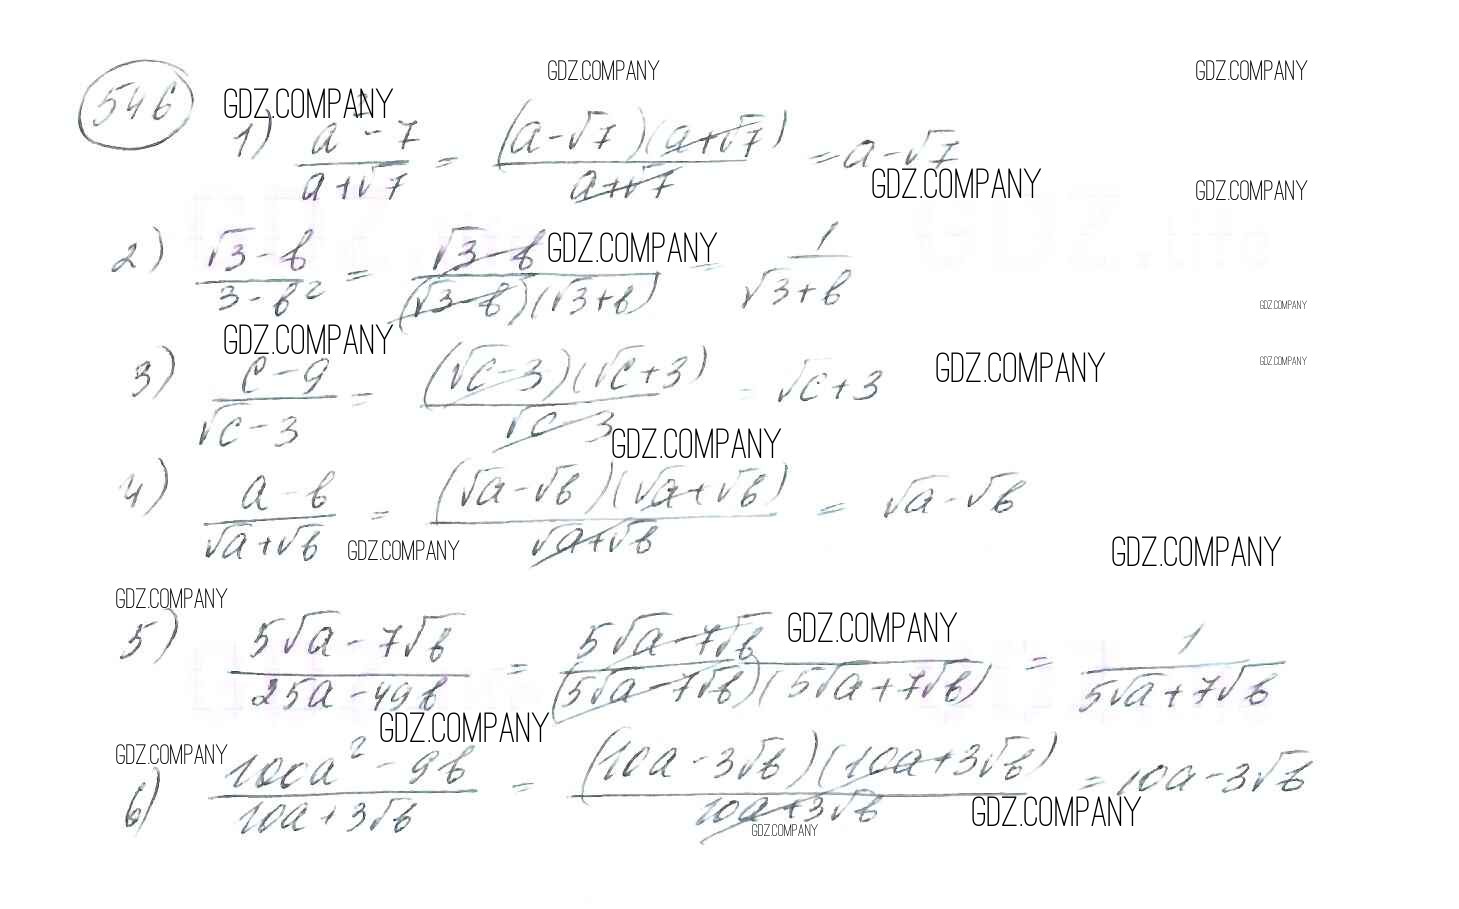 GDZ.COMPANY GDZ.COMPANY
546 GDZ.COMPANY
1) (a² - 7)/(a + √7) = ((a - √7)(a + √7))/(a + √7) = a - √7
GDZ.COMPANY GDZ.COMPANY
2) (√3 - b)/(3 - b²) = (√3 - b)/((√3 - b)(√3 + b)) = 1/(√3 + b)
GDZ.COMPANY
GDZ.COMPANY
GDZ.COMPANY
3) (c - 9)/(√c - 3) = ((√c - 3)(√c + 3))/(√c - 3) = √c + 3
GDZ.COMPANY GDZ.COMPANY
GDZ.COMPANY
4) (a - b)/(√a + √b) = ((√a - √b)(√a + √b))/(√a + √b) = √a - √b
GDZ.COMPANY GDZ.COMPANY
GDZ.COMPANY GDZ.COMPANY
5) (5√a - 7√b)/(25a - 49b) = (5√a - 7√b)/((5√a - 7√b)(5√a + 7√b)) = 1/(5√a + 7√b)
GDZ.COMPANY
GDZ.COMPANY
6) (100a² - 9b)/(10a + 3√b) = ((10a - 3√b)(10a + 3√b))/(10a + 3√b) = 10a - 3√b
GDZ.COMPANY
GDZ.COMPANY